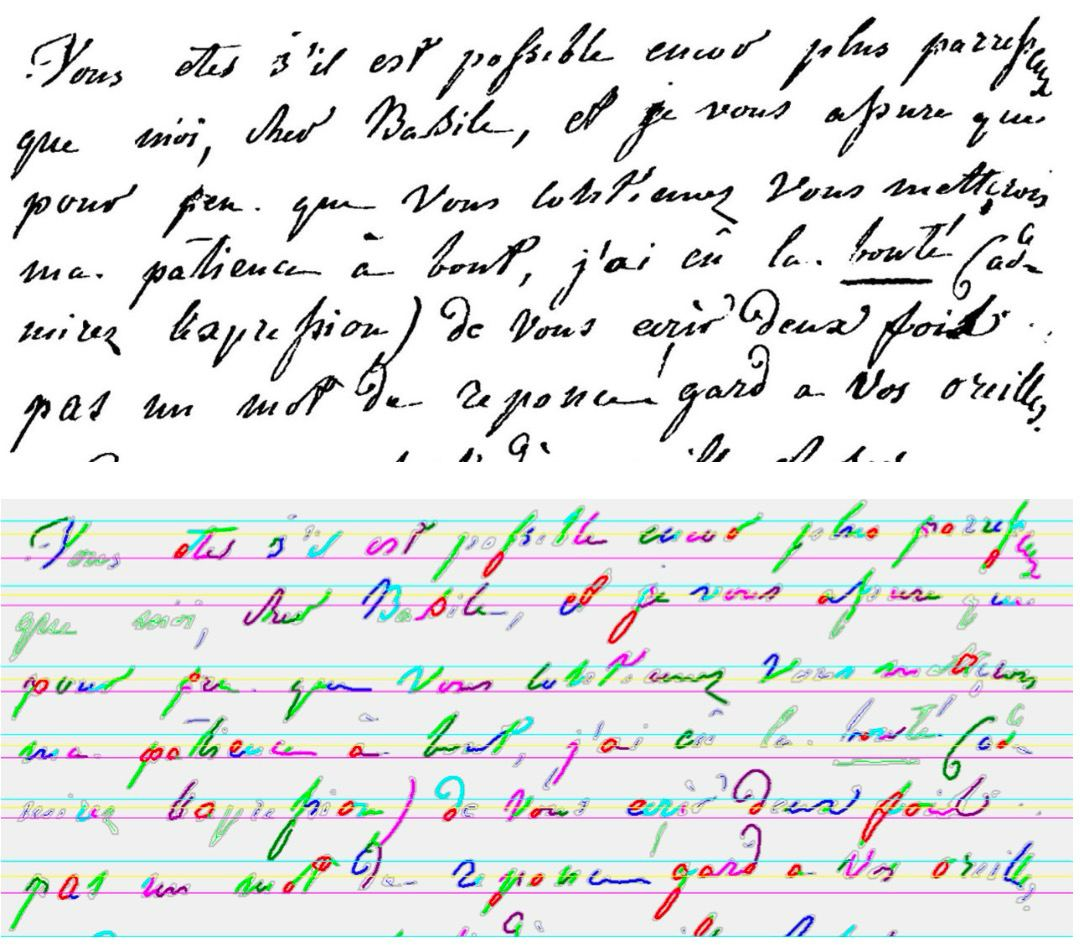 Vous etes s'il est possible encor plus paresseux
que moi, cher Basile, et je vous assure que
pour peu. que Vous continuez Vous metterois
ma. patience à bout, j'ai eu la. bonté (ad-
mirez l'expression) de Vous ecrir deux fois
pas un mot de reponce gard a Vos oreilles
Vous etes s'il est possible encor plus paresseux
que moi, cher Basile, et je vous assure que
pour peu. que Vous continuez Vous metterois
ma. patience à bout, j'ai eu la. bonté (ad-
mirez l'expression) de Vous ecrir deux fois
pas un mot de reponce gard a Vos oreilles